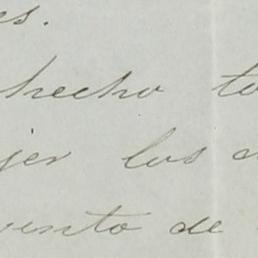 es.
hecho to
jer los
vento de